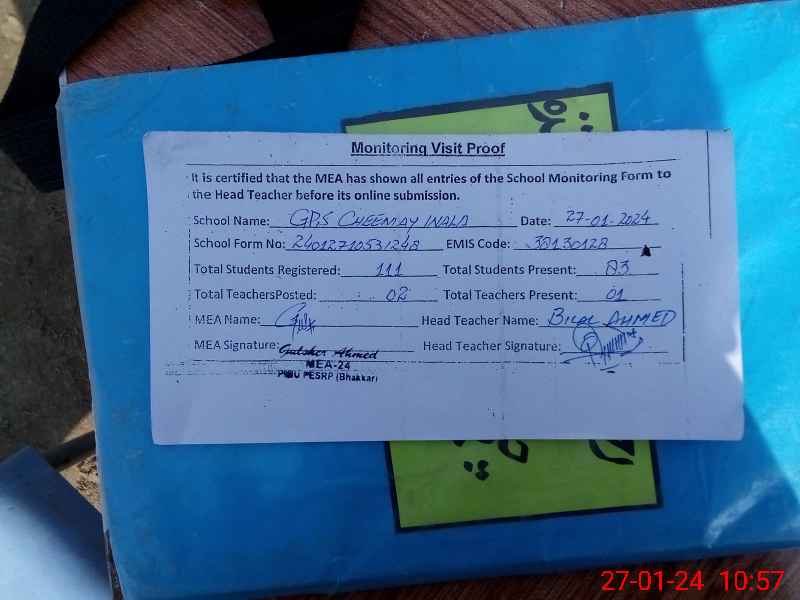 Monitoring Visit Proof
It is certified that the MEA has shown all entries of the School Monitoring Form to
the Head Teacher before its online submission.
School Name: GPS CHEEMAY WALA Date: 27-01-2024
School Form No: 24012710531248 EMIS Code: 38130128
Total Students Registered: 111 Total Students Present: 83
Total TeachersPosted: 02 Total Teachers Present: 01
MEA Name: Head Teacher Name: BILAL AHMED
MEA Signature: Head Teacher Signature:
Gulsher Ahmed
MEA-24
PMIU PESRP (Bhakkar)
27-01-24 10:57